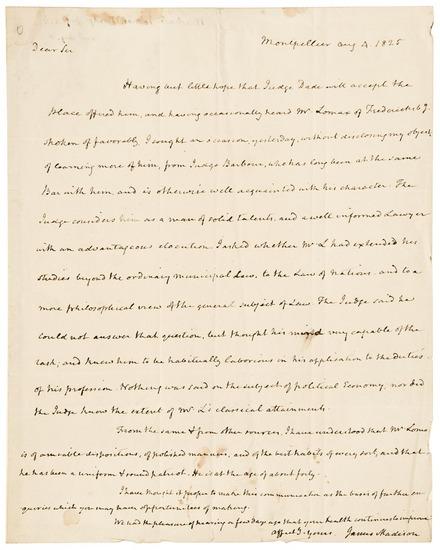 Montpellier Aug 4. 1825
Dear Sir
Having but little hope that Judge Dade will accept the
place offered him, and having occasionally heard Mr Lomax of Fredericksbg
spoken of favorably, I sought an occasion, yesterday, without disclosing my object,
of learning more of him, from Judge Barbour, who has long been at the same
Bar with him, and is otherwise well acquainted with his character. The
Judge considers him as a man of solid talents, and a well informed Lawyer
with an advantageous elocution. I asked whether Mr L had extended his
studies beyond the ordinary municipal Law, to the Law of Nations, and to a
more philosophical view of the general subject of Law. The Judge said he
could not answer that question, but thought his mind very capable of the
task; and knew him to be habitually laborious in his application to the duties
of his profession. Nothing was said on the subject of political Economy, nor did
the Judge know the extent of Mr L's classical attainments.
From the same & from other sources, I have understood that Mr Lomax
is of amiable dispositions, of polished manners, and of the best habits of every sort; and that
he has been a uniform & sound patriot. He is at the age of about forty.
I have thought it proper to make this communication as the basis of further en-
quiries which you may have opportunities of making.
We had the pleasure of hearing a few days ago that your health continues to improve
Affecty. yours James Madison